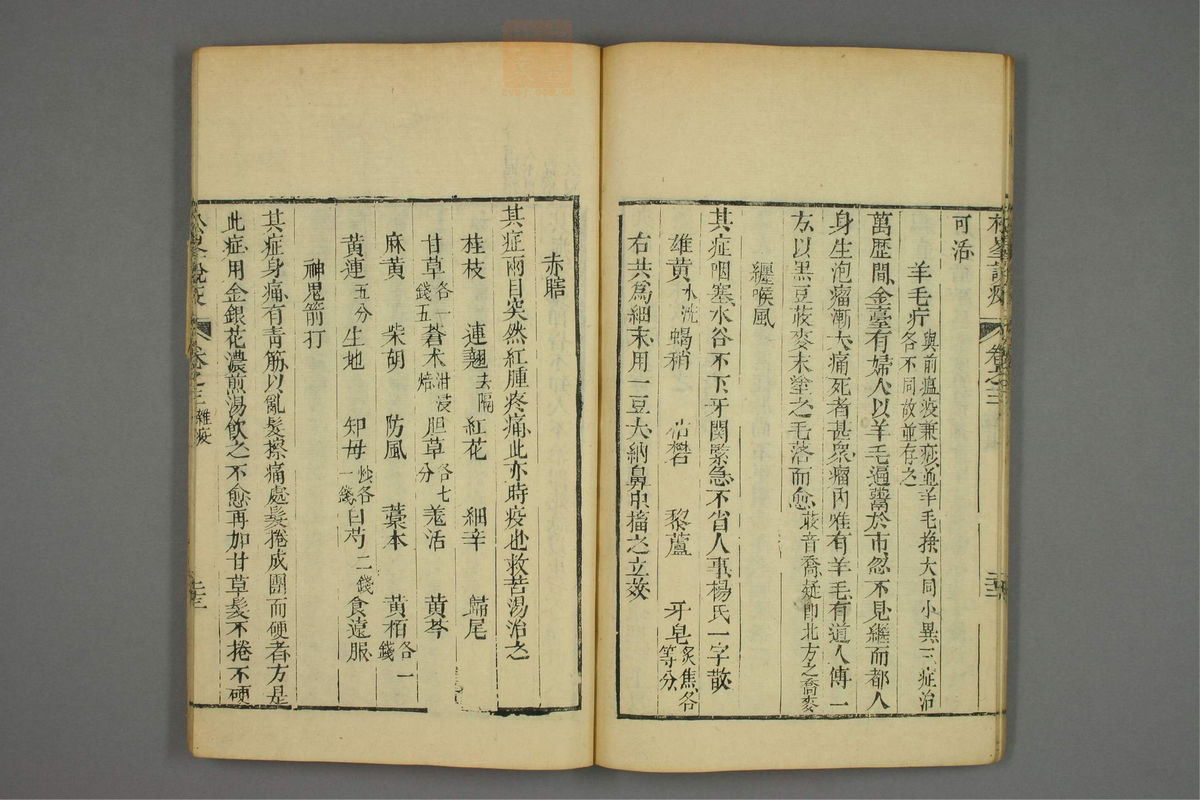 松峯說疫 卷之三
可活
羊毛疔 與前瘟疫兼痧並羊毛挣大同小異三症治
各不同故並存之
萬歷間金臺有婦人以羊毛遍鬻於市忽不見繼而都人
身生泡瘤漸大痛死者甚衆瘤內唯有羊毛有道人傳一
方以黑豆莜麥末塗之毛落而愈 莜音喬疑即北方之喬麥
纏喉風
其症咽塞水谷不下牙關緊急不省人事楊氏一字散
雄黃 水洗 蝎稍 枯礬 黎蘆 牙皂 炙焦各等分
右共為細末用一豆大納鼻中搐之立效
赤瞎
其症兩目突然紅腫疼痛此亦時疫也救苦湯治之
桂枝 連翹 去隔 紅花 細辛 歸尾
甘草 各一錢五 蒼术 泔浸焙 胆草 各七分 羗活 黃芩
麻黃 柴胡 防風 藁本 黃栢 各一錢
黃連 五分 生地 知母 炒各一錢 白芍 二錢 食遠服
神鬼箭打
其症身痛有青筋以亂髮擦痛處髮捲成團而硬者方是
此症用金銀花濃煎湯飲之不愈再加甘草髮不捲不硬
松峯說疫 卷之三 雜疫 二十三